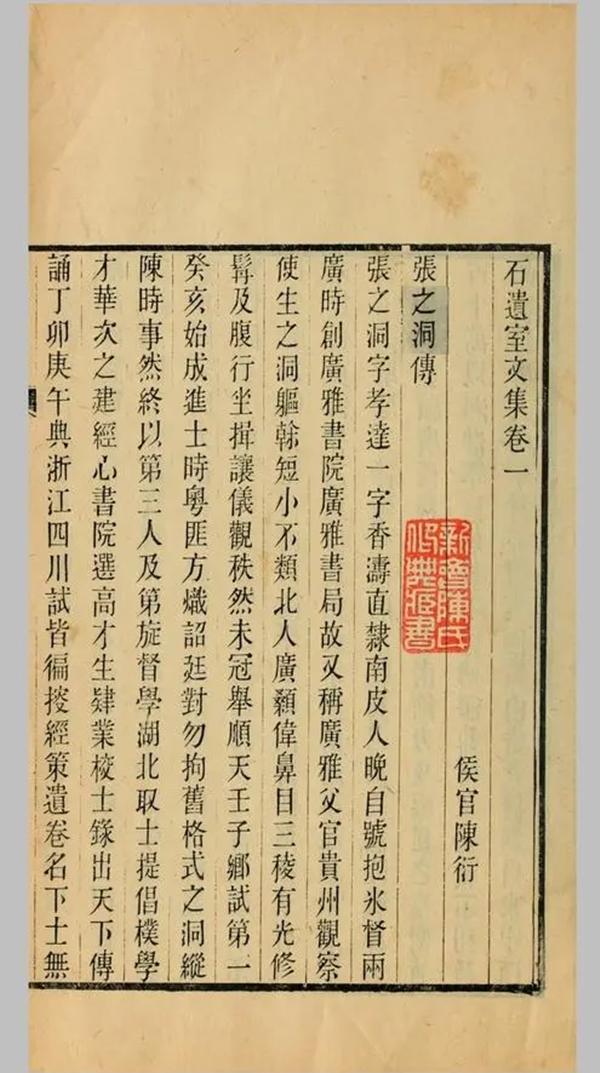 石遺室文集卷一
侯官陳衍
新會陳氏
張之洞傳
張之洞字孝達一字香濤直隸南皮人晚自號抱氷督兩
廣時創廣雅書院廣雅書局故又稱廣雅父官貴州觀察
使生之洞軀榦短小不類北人廣顙偉鼻目三稜有光修
髯及腹行坐揖讓儀觀秩然未冠舉順天壬子鄉試第一
癸亥始成進士時粵匪方熾詔廷對勿拘舊格式之洞縱
陳時事然終以第三人及第旋督學湖北取士提倡樸學
才華次之建經心書院選高才生肄業校士錄出天下傳
誦丁卯庚午典浙江四川試皆徧挍經策遺卷名下士無